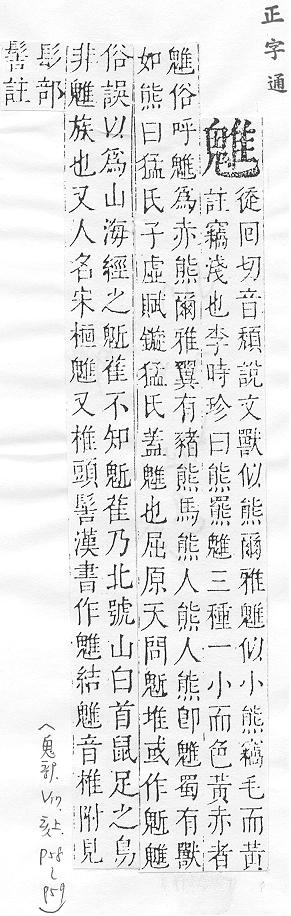 正字通
魋
從回切音頹說文獸似熊爾雅魋似小熊竊毛而黃
註竊淺也李時珍曰熊羆魋三種一小而色黃赤者
魋俗呼魋為赤熊爾雅翼有豬熊馬熊人熊人熊卽魋蜀有獸
如熊曰猛氏子虛賦鏇猛氏蓋魋也屈原天問鬿堆或作鬿魋
俗誤以為山海經之鬿雀不知鬿雀乃北號山白首鼠足之鳥
非魋族也又人名宋桓魋又椎頭髻漢書作魋結魋音椎附見
髟部
髻註
(鬼部、V17、亥上、P58~P59)